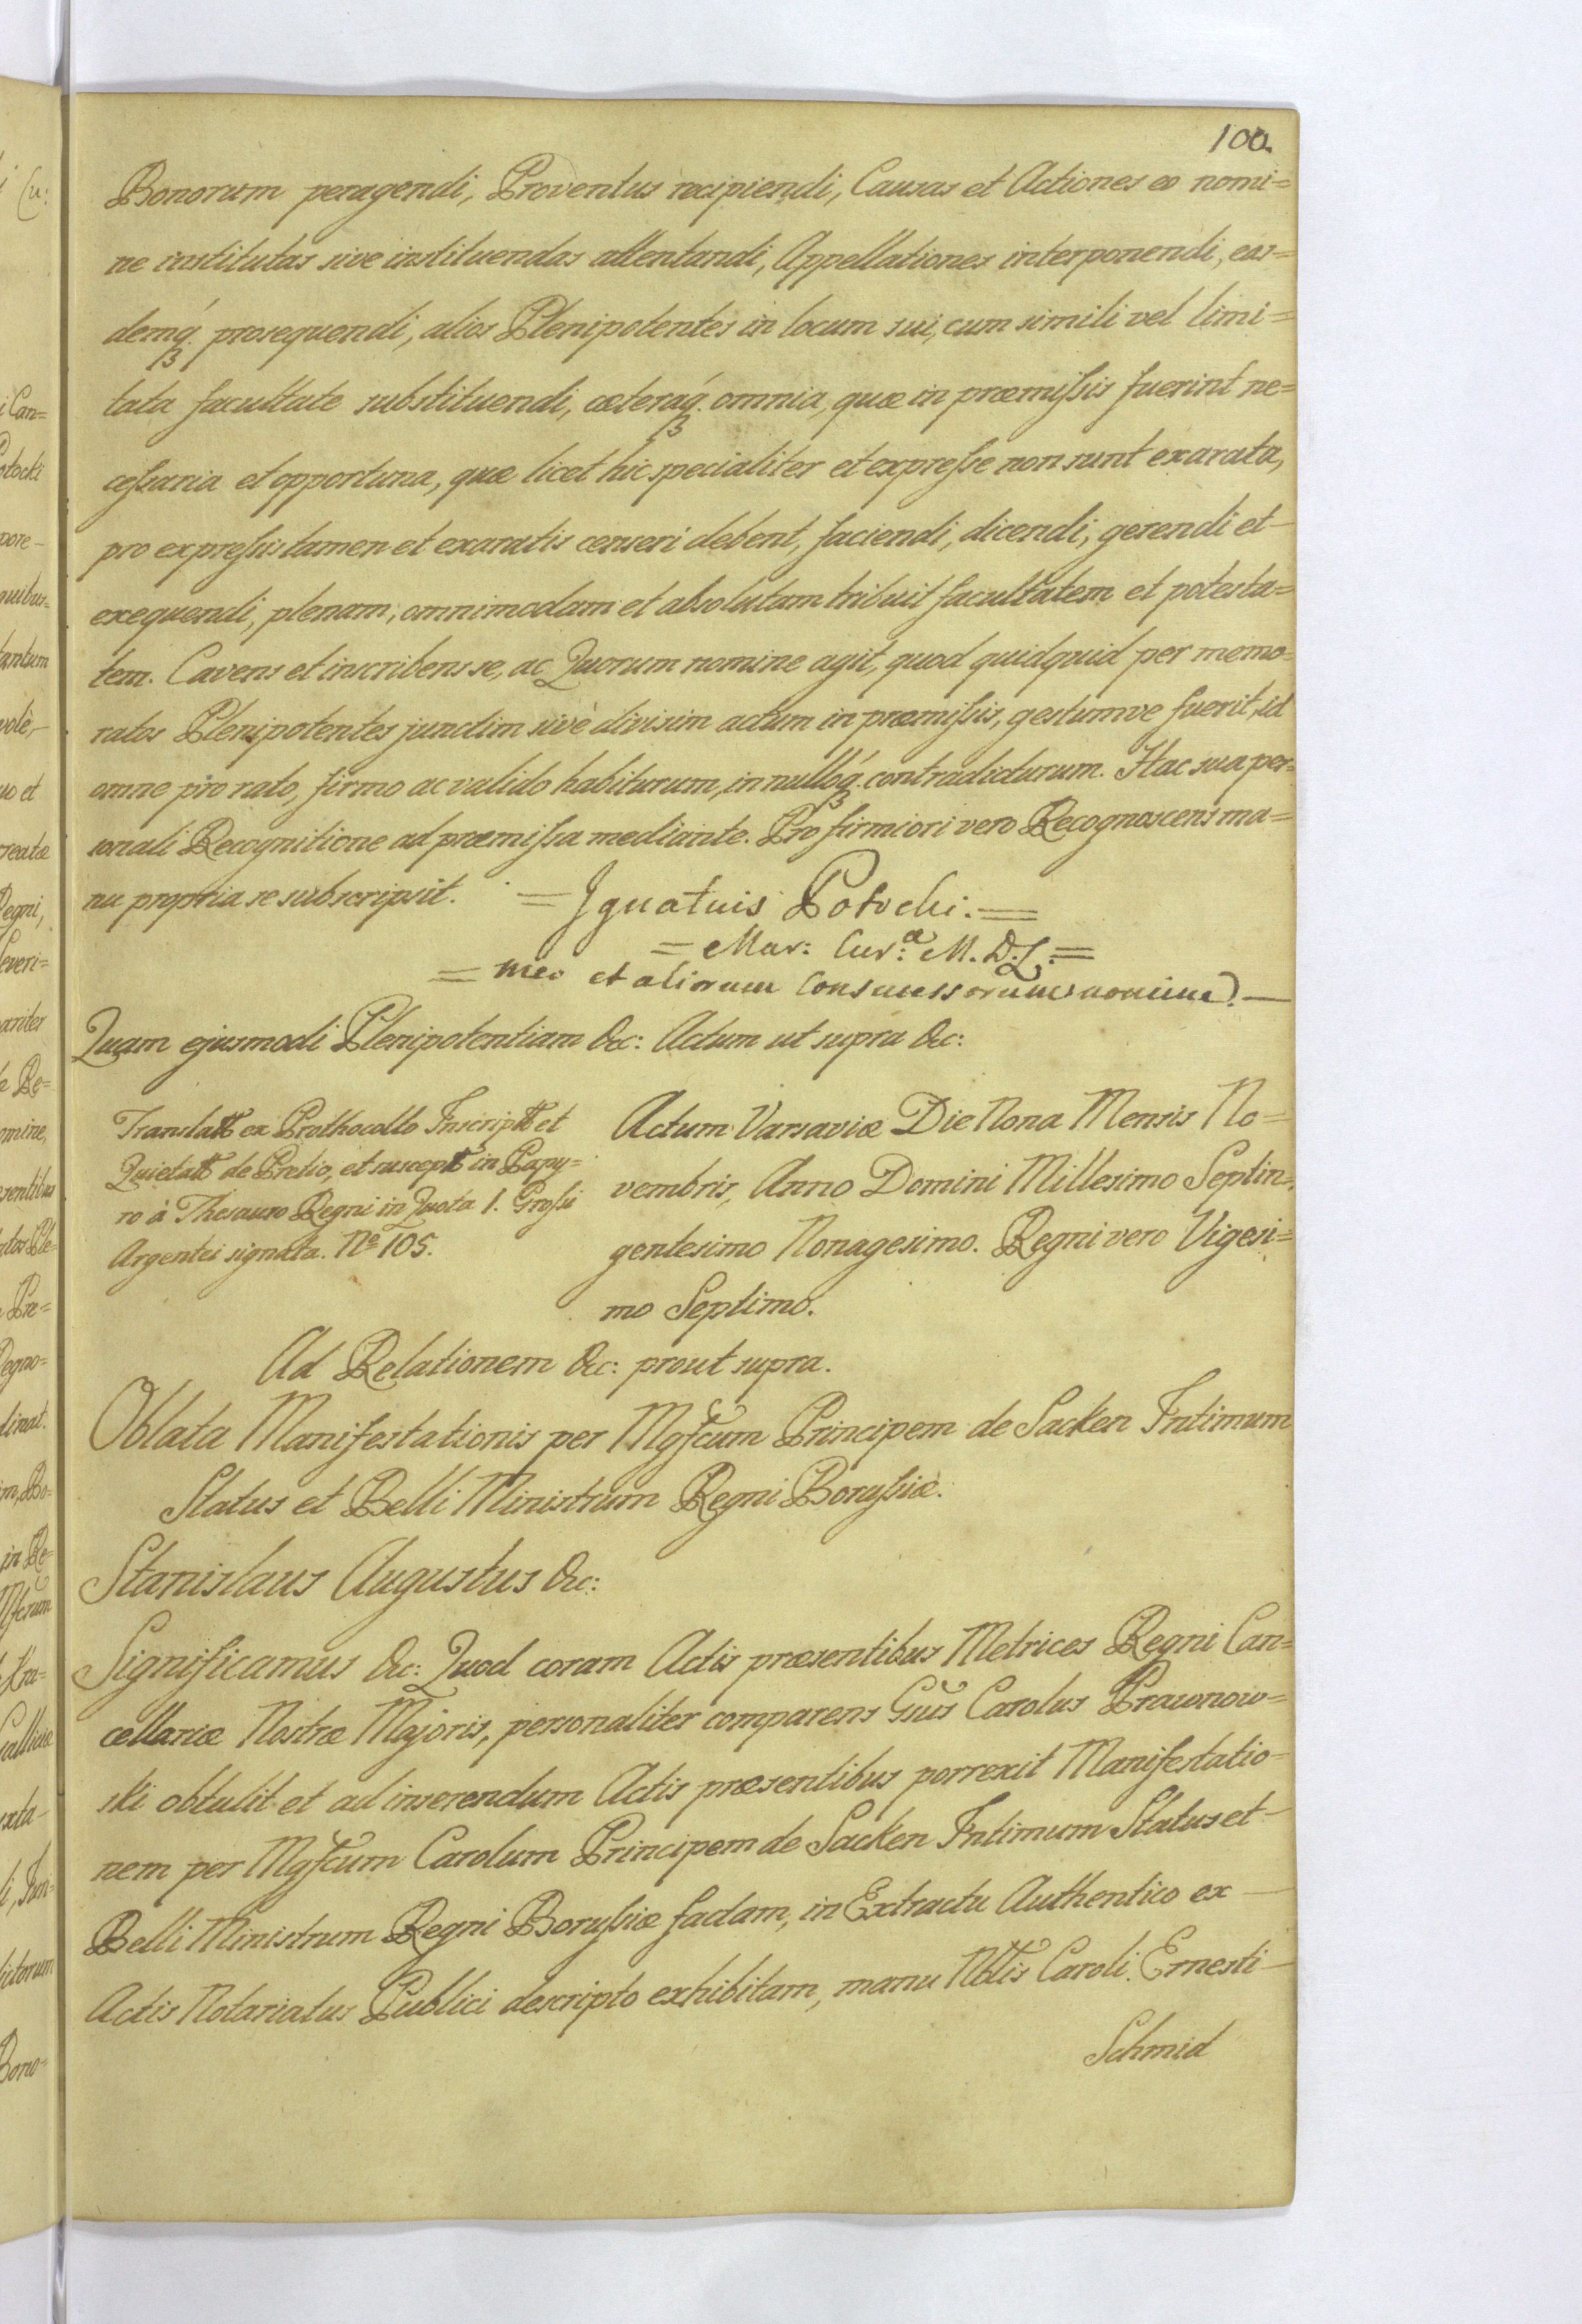 100.
Bonorum peragendi, Proventus recipiendi, Causas et Actiones eo nomi=
ne institutas sive instituendas attentandi, Appellationes interponendi, eas=
demq́ꝫ prosequendi, alios Plenipotentes in locum sui, cum simili vel limi=
tata facultate substituendi, cæteraq́ꝫ omnia, quæ in præmiſsis fuerint ne=
ceſsaria et opportuna, quæ licet hic specialiter et expreſse non sunt exarata,
pro expreſsis tamen et exaratis censeri debent, faciendi, dicendi, gerendi et
exequendi, plenam, omnimodam et absolutam tribuit facultatem et potesta=
tem. Cavens et inscribens se, ac Quorum nomine agit, quod quidquid per memo=
ratos Plenipotentes junctim sivè divisim actum in præmiſsis, gestumve fuerit, id
omne pro rato, firmo ac valido habiturum, in nulloq́ꝫ contradicturum. Hac sua per=
sonali Recognitione ad præmiſsa mediante. Pro firmiori vero Recognoscens ma=
nu propria se subscripsit. = Ignatuis Potocki: =
= Mar: Cur:æ M. D. L. =
= meo et aliorum Consuccessorum nomine. —
Quam ejusmodi Plenipotentiam &c: Actum ut supra &c:
Translatt ex Prothocollo Inscriptt et
Quietatt de Pretio, et susceptt in Papy=
ro à Thesauro Regni in Quota 1. Groſsi
Argentei signata. No 105.
Actum Varsaviæ Die Nona Mensis No=
vembris, Anno Domini Millesimo Septin=
gentesimo Nonagesimo. Regni vero Vigesi=
mo Septimo.
Ad Relationem &c: prout supra.
Oblata Manifestationis per Mgfcum Principem de Sacken Intimum
Status et Belli Ministrum Regni Boruſsiæ.
Stanislaus Augustus &c:
Significamus &c: Quod coram Actis præsentibus Metrices Regni Can=
cellariæ Nostræ Majoris, personaliter comparens Gsus Carolus Prawnow=
ski obtulit et ad inserendum Actis præsentibus porrexit Manifestatio=
nem per Mgfcum Carolum Principem de Sacken Intimum Status et
Belli Ministrum Regni Boruſsiæ factam, in Extractu Authentico ex
Actis Notariatus Publici descripto exhibitam, manu Nbtis Caroli Ernesti
Schmid